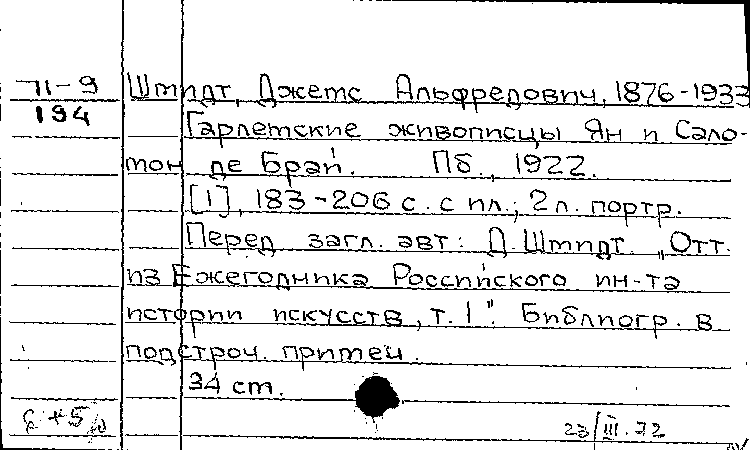 71-9 Шмидт, Джемс Альфредович, 1876-1933
194
Гарлемские живописцы Ян и Сало-
мон де Брай. Пб., 1922.
[1], 183-206 с. с ил.; 2 л. портр.
Перед загл. авт: Д. Шмидт. „Отт.
из Ежегодника Российского ин-та
истории искусств, т. 1". Библиогр. в
подстроч. примеч.
34 см.
23/III.72